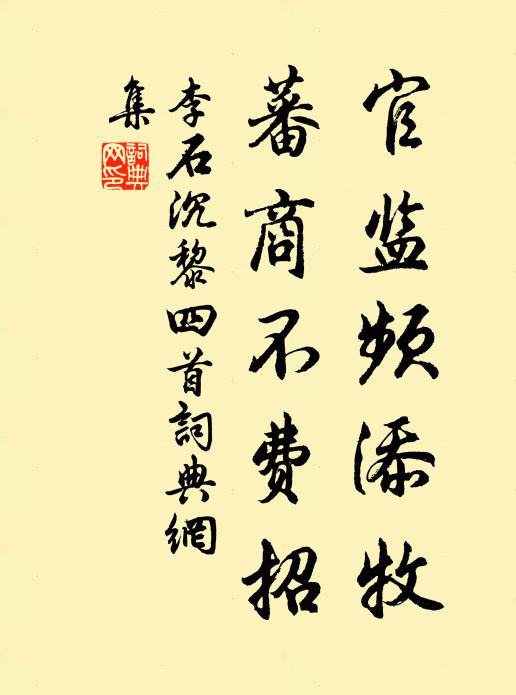 官监频添牧
蕃商不费招
李石沉黎四首詞典網
集
詞典
网印